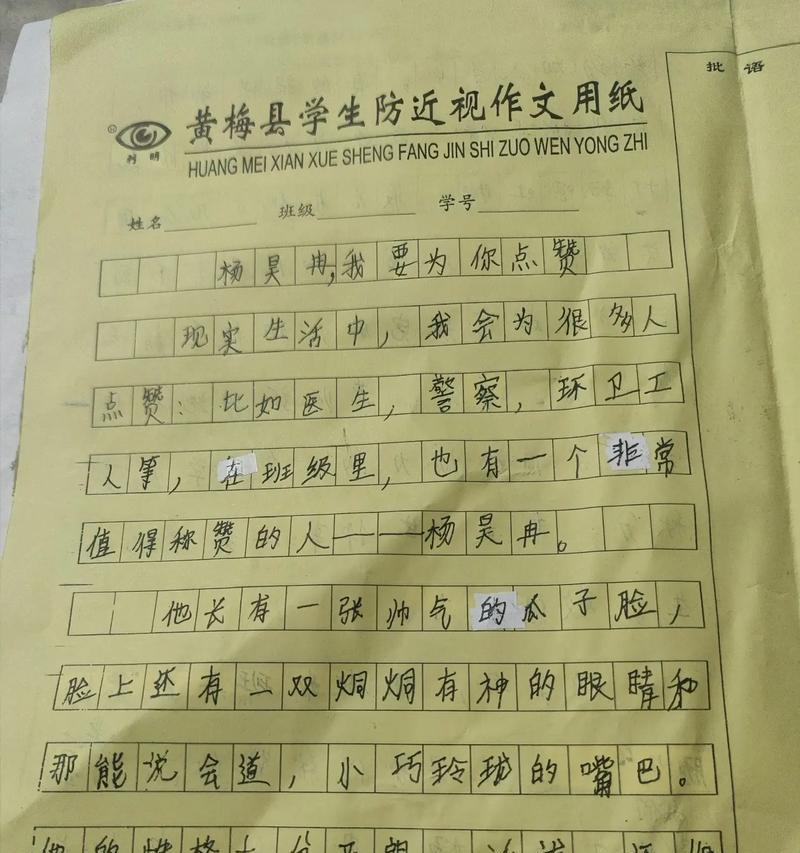 批 语
黄梅县学生防近视作文用纸
利明
HUANG MEI XIAN XUE SHENG FANG JIN SHI ZUO WEN YONG ZHI
姓名 班级 学号
杨昊冉,我要为你点赞
现实生活中，我会为很多人
点赞：比如医生，警察，环卫工
人等，在班级里，也有一个非常
值得称赞的人——杨昊冉。
他长有一张帅气的瓜子脸，
脸上还有一双炯炯有神的眼睛和
那能说会道，小巧玲珑的嘴巴。
他的性格十分开朗